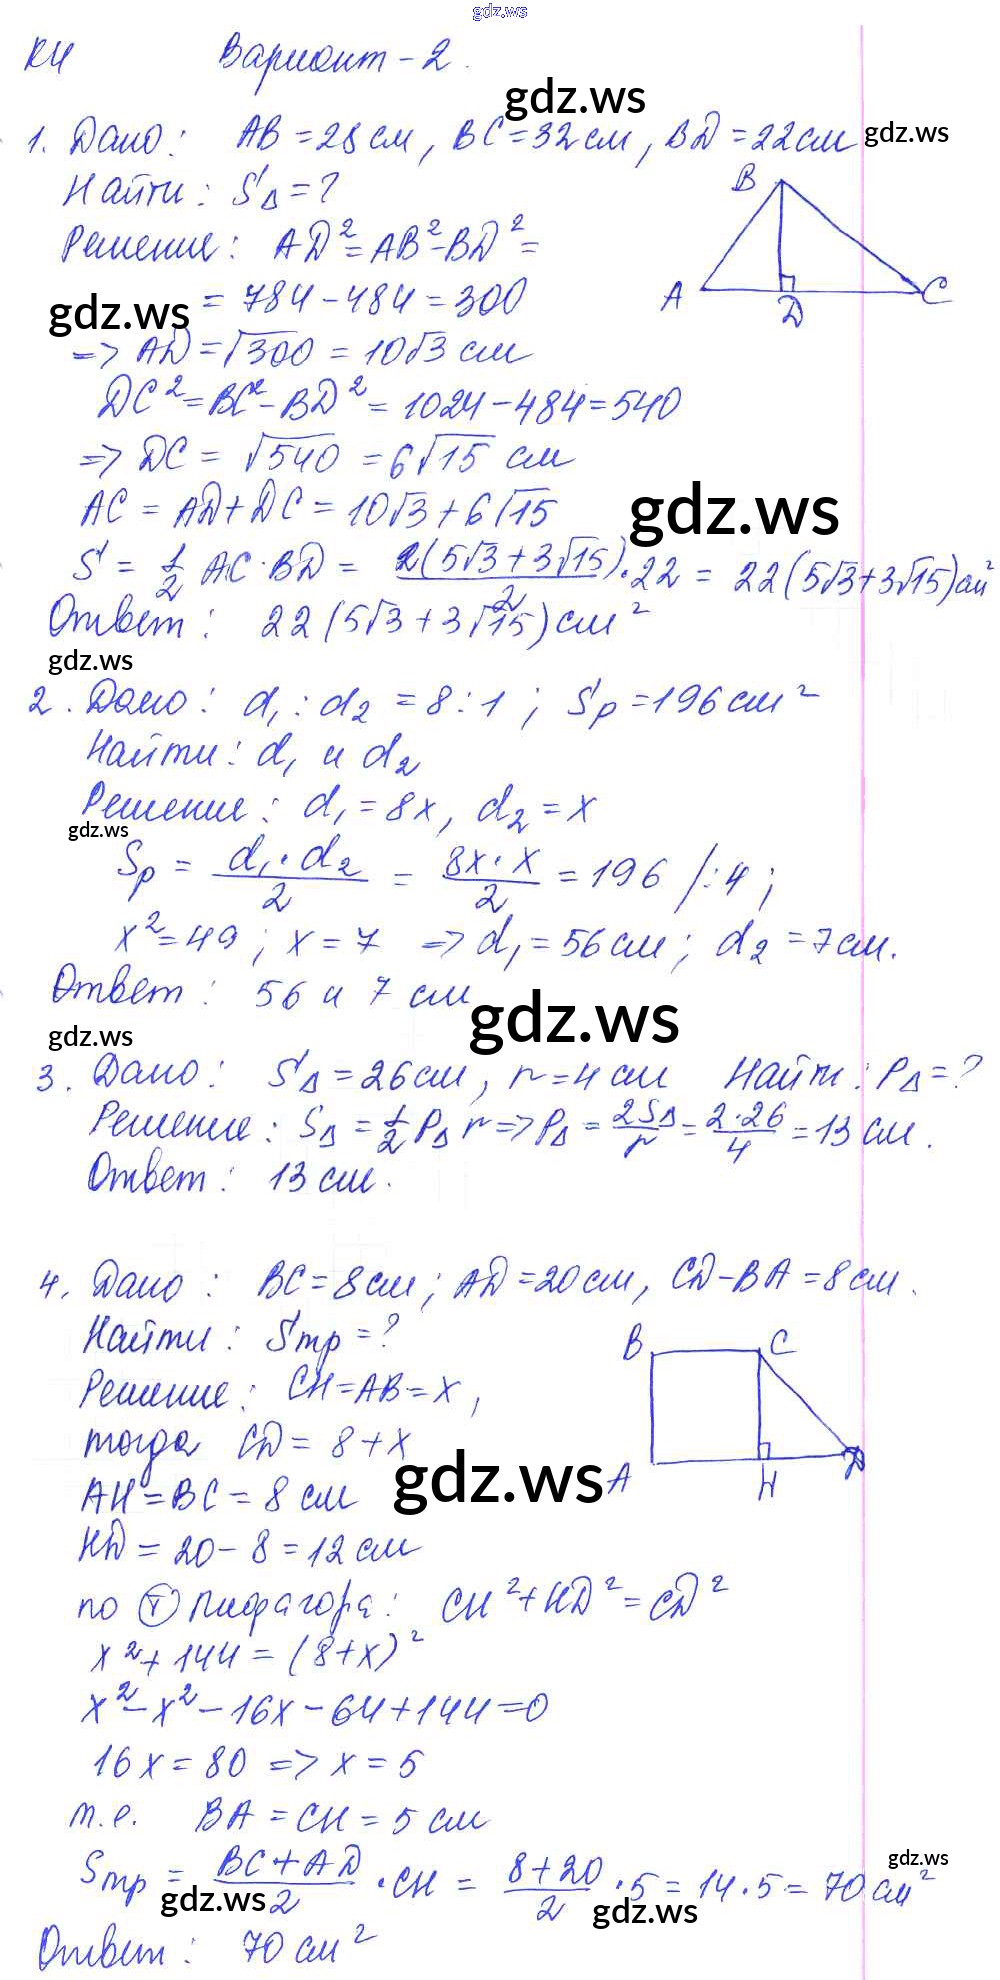 gdz.ws
К4 Вариант-2.
gdz.ws
1. Дано: AB=28см, BC=32см, BD=22см
gdz.ws
Найти: S△=?
B
Решение: AD²=AB²-BD²=
A D C
=784-484=300
gdz.ws
=> AD=√300=10√3 см
DC²=BC²-BD²=1024-484=540
=> DC=√540=6√15 см
AC=AD+DC=10√3+6√15
gdz.ws
S=1/2 AC·BD= 2(5√3+3√15)/2·22=22(5√3+3√15)см²
Ответ: 22(5√3+3√15)см²
gdz.ws
2. Дано: d₁:d₂=8:1; Sр=196см²
Найти: d₁ и d₂
Решение: d₁=8x, d₂=x
gdz.ws
Sр=d₁·d₂/2=8x·x/2=196 /:4;
x²=49; x=7 => d₁=56см; d₂=7см.
Ответ: 56 и 7 см
gdz.ws
gdz.ws
3. Дано: S△=26см, r=4см Найти: P△=?
Решение: S△=1/2 P△ r=>P△=2S△/r=2·26/4=13см.
Ответ: 13 см.
4. Дано: BC=8см; AD=20см, CD-BA=8см.
Найти: Sтр=?
B C
Решение: CH=AB=x,
тогда CD=8+x
A H D
gdz.ws
AH=BC=8 см
HD=20-8=12см
по Ⓣ Пифагора: CH²+HD²=CD²
x²+144=(8+x)²
x²-x²-16x-64+144=0
16x=80 => x=5
т.е. BA=CH=5 см
gdz.ws
Sтр=BC+AD/2·CH=8+20/2·5=14·5=70см²
gdz.ws
gdz.ws
Ответ: 70см²
gdz.ws